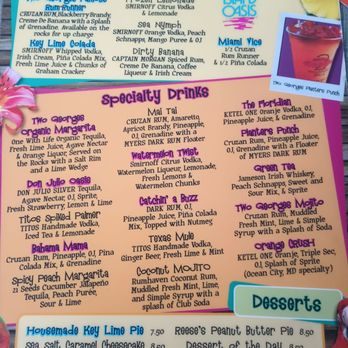 Runner
CRUZAN RUM, Blackberry Brandy,
Creme De Banana with a Splash
of Grenadine. Available on the
rocks for up charge
Key Lime Colada
SMIRNOFF Whipped Vodka,
Irish Cream, Piña Colada Mix,
Fresh Lime Juice & Chunks of
Graham Cracker
Frozen Lemonade
SMIRNOFF Citrus Vodka
& Lemonade
Sea Nymph
SMIRNOFF Orange Vodka, Peach
Schnapps, Mango Puree & OJ
Dirty Banana
CAPTAIN MORGAN Spiced Rum,
Creme De Banana, Coffee
Liqueur & Irish Cream
OASIS
Miami Vice
1/2 Cruzan
Rum Runner
Two Georges Planters Punch
Specialty Drinks
Two Georges
Organic Margarita
One With Life Organic Tequila,
Fresh Lime Juice, Agave Nectar
& Orange Liquor, Served on
the Rocks with a Salt Rim
and a Lime Wedge
Don Julio Oasis
DON JULIO SILVER Tequila,
Agave Nectar, OJ, Sprite,
Fresh Strawberry, Lemon & Lime
Titos Spiked Palmer
TITOS Handmade Vodka,
Iced Tea & Lemonade
Bahama Mama
Cruzan Rum, Pineapple, OJ, Piña
Colada Mix, & Grenadine
Spicy Peach Margarita
21 Seeds Cucumber Jalapeño
Tequila, Peach Purée,
Sour & Lime
Mai Tai
CRUZAN RUM, Amaretto,
Apricot Brandy, Pineapple,
OJ, Grenadine with a
MYERS DARK RUM Floater
Watermelon Twist
Smirnoff Citrus Vodka,
Watermelon Liqueur, Lemonade,
Fresh Lemons &
Watermelon Chunks
Catchin' a Buzz
DARK RUM, OJ,
Pineapple Juice, Piña Colada
Mix, Topped with Nutmeg
Texas Mule
TITOS Handmade Vodka,
Ginger Beer, Fresh Lime & Mint
Coconut Mojito
Rumhaven Coconut Rum,
Muddled Fresh Mint, Lime,
and Simple Syrup with a
splash of Club Soda
The Floridian
KETEL ONE Oranje Vodka, OJ,
Pineapple Juice, & Grenadine
Planters Punch
Cruzan Rum, Pineapple Juice,
OJ, Grenadine with a Floater
of MYERS DARK RUM
Green Tea
Jameson Irish Whiskey,
Peach Schnapps, Sweet and
Sour Mix, & Sprite
Two Georges Mojito
Cruzan RUM, Muddled
Fresh Mint, Lime & Simple
Syrup with a Splash of Soda
Orange Crush
KETEL ONE Oranje, Triple Sec,
OJ & a Splash of Sprite
(Ocean City, MD specialty)
Desserts
Housemade Key Lime Pie 7.50
Sea Salt Caramel Cheesecake 8.50
Reese's Peanut Butter Pie 8.50
Dessert of the Day